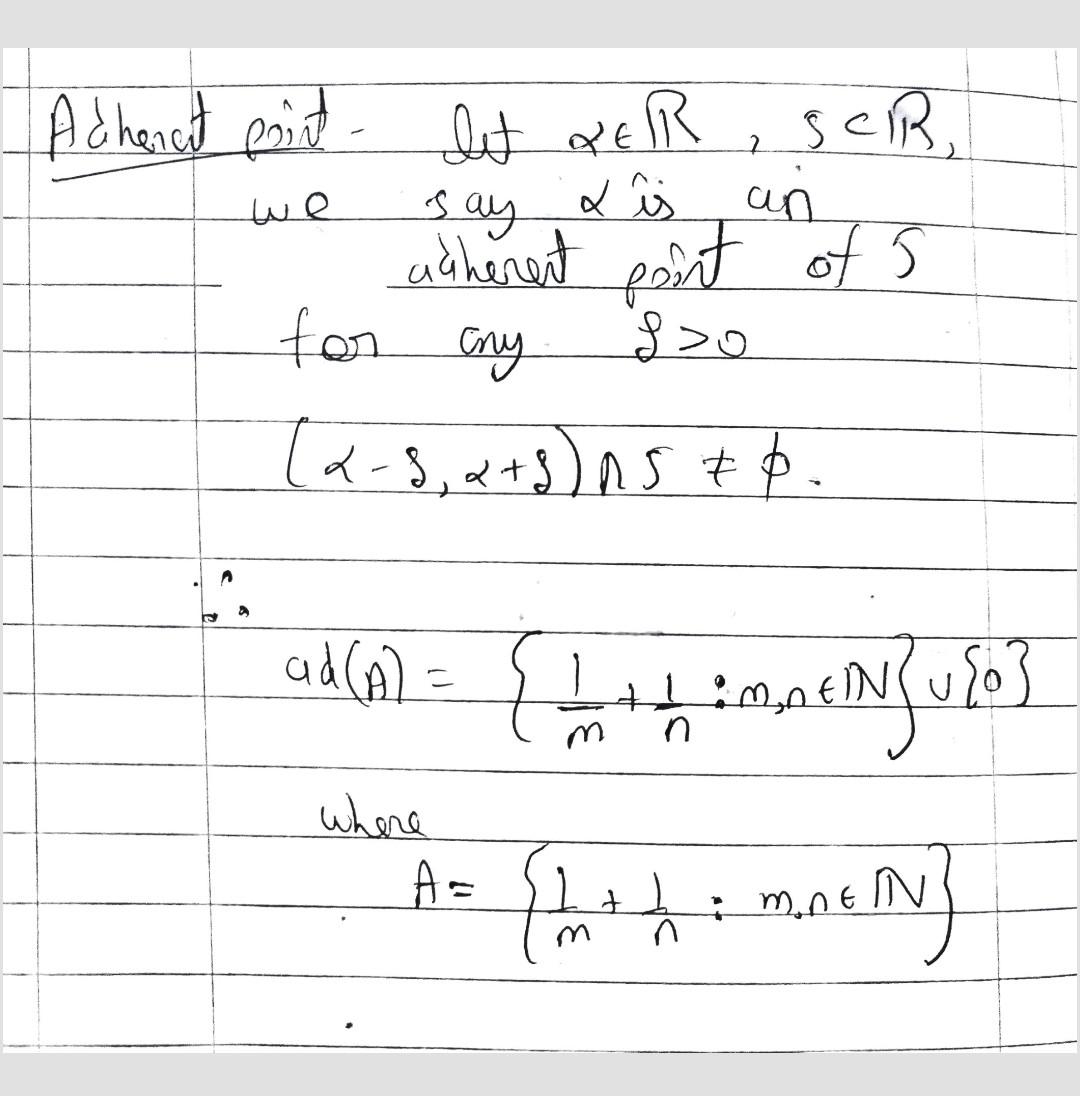 Adherent point - let α ∈ ℝ , S ⊂ ℝ,
we say α is an
adherent point of S
for any δ > 0
(α-δ, α+δ) ∩ S ≠ φ.
∴
ad(A) = {1/m + 1/n : m,n ∈ ℕ} ∪ {0}
where
A = {1/m + 1/n : m,n ∈ ℕ}